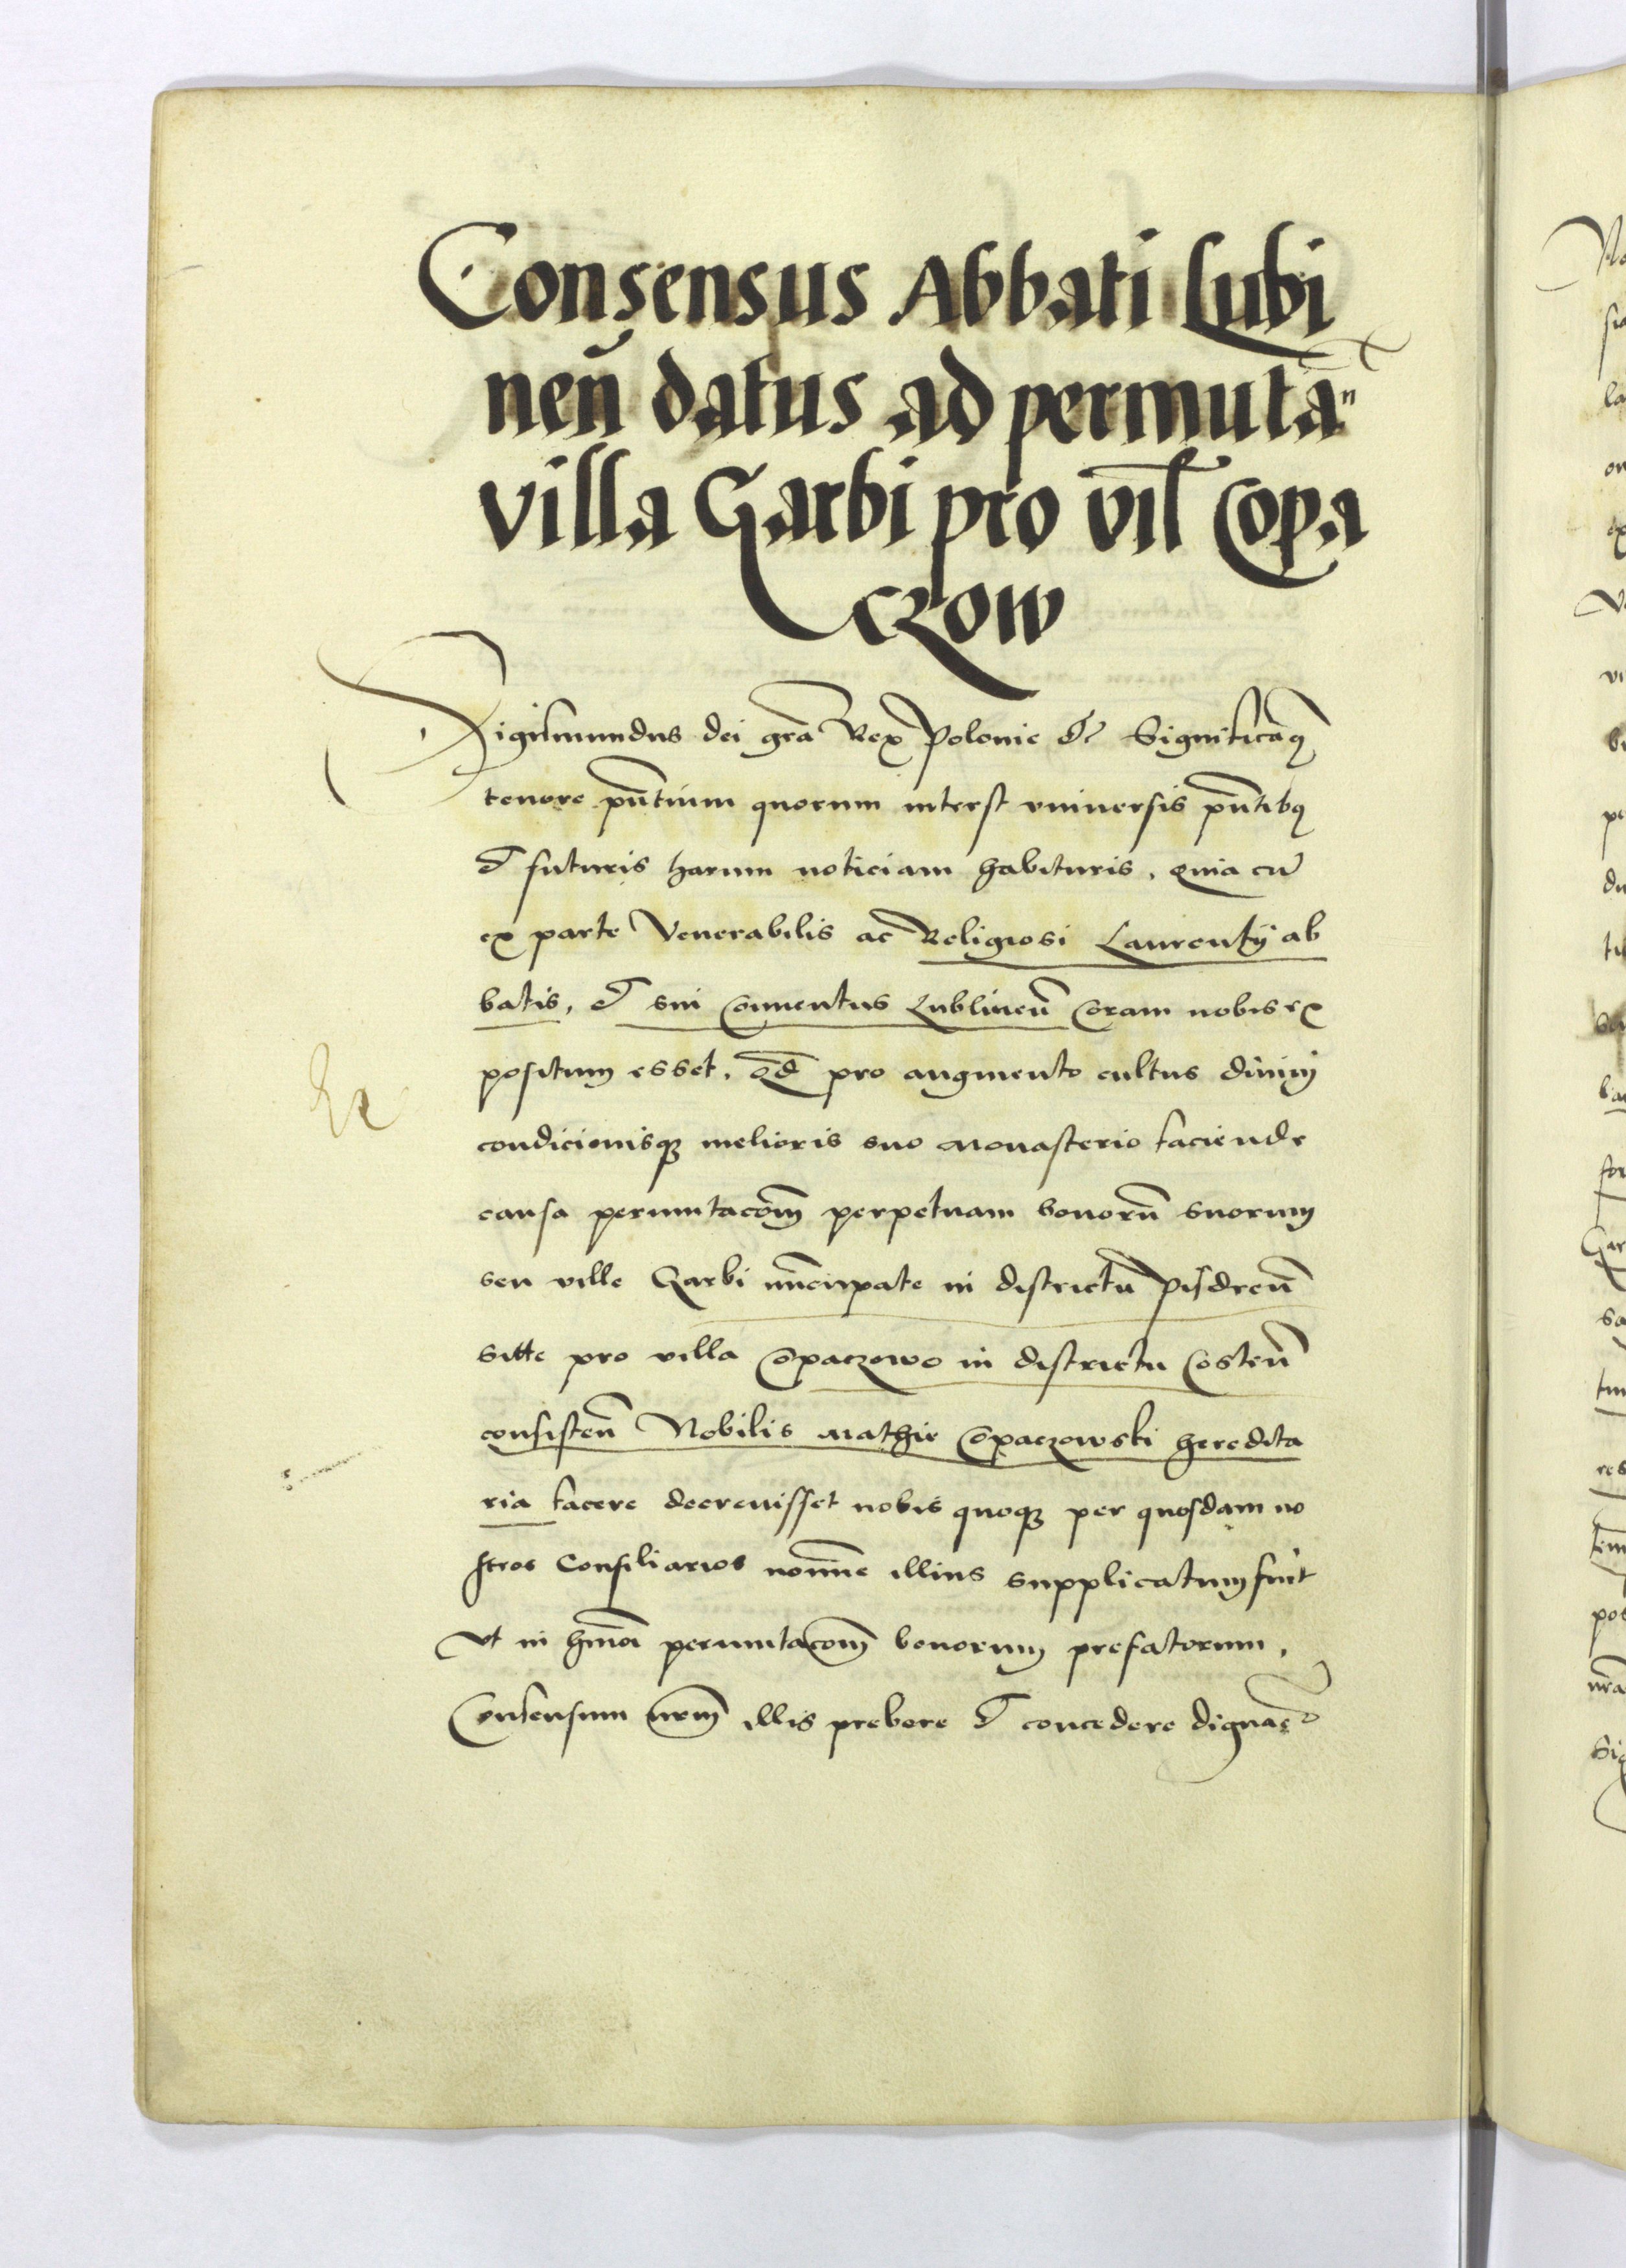 Consensus Abbati Lubi
nen̄ datus ad permutā
villa Garbi pro vil̄ Copa
czow
Sigismundus dei gr̄a Rex Polonie &c Significam̄q
tenore pn̄tium quorum interst vniuersis pn̄tibꝯ
& futuris harum noticiam habituris, quia cū
ex parte Venerabilis ac Religiosi Laurentÿ ab
batis, & sui Conuentus Lublinen̄ Coram nobis ex
positum esset, qd̄ pro augmento cultus diuinj
condicionisqꝫ melioris suo Monasterio faciende
causa permutacōm perpetuam bonorū suorum
seu ville Garbi nūcupate in districtū Pisdren̄
sitte pro villa Copaczowo in districtu Costen̄
consisten̄ Nobilis Mathie Copaczowski heredita
ria facere decreuisset nobis quoqꝫ per quosdam no
stros Consiliarios nomīne illius supplicatum fuit
Vt in hm̄oi permutacōm bonorum prefatorum,
Consensum nr̄m illis prebere & concedere dignare